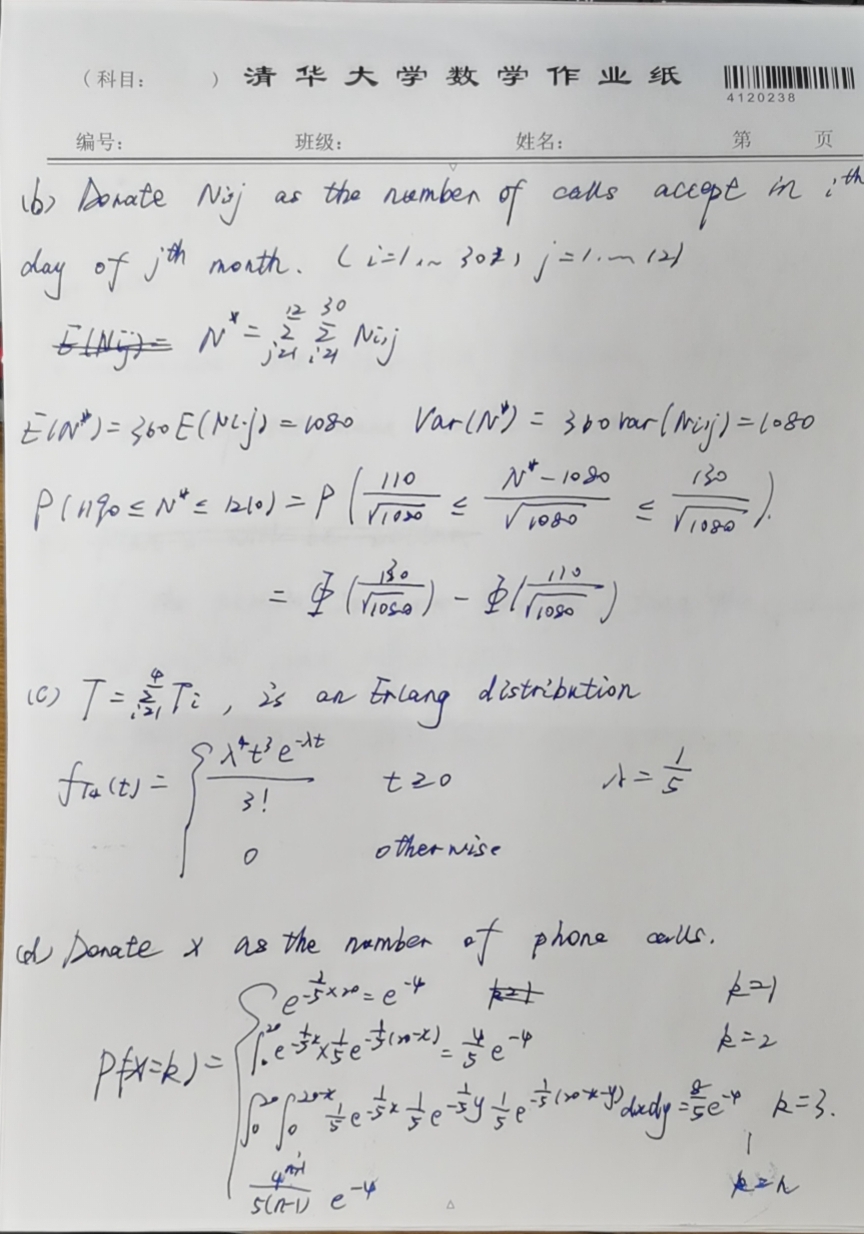 (科目: ) 清华大学数学作业纸
4120238
编号: 班级: 姓名: 第 页
(b) Donate Nij as the number of calls accept in i^th
day of j^th month. (i=1.~30, j=1.~12)
N* = Σ_{j=1}^{12} Σ_{i=1}^{30} Ni,j
E(N*) = 360E(Ni.j) = 1080 Var(N*) = 360 var(Ni,j) = 1080
P(1190 ≤ N* ≤ 1210) = P(110/√1080 ≤ (N*-1080)/√1080 ≤ 130/√1080).
= Φ(130/√1080) - Φ(110/√1080)
(c) T = Σ_{i=1}^{4} Ti, is an Erlang distribution
f_{T4}(t) = { λ^4 t^3 e^{-λt} / 3! t≥0 λ = 1/5
0 otherwise
(d) Donate x as the number of phone calls.
P(X=k) = { e^{-1/5×20} = e^{-4} k=1
∫_0^{20} e^{-1/5 x} × 1/5 e^{-1/5(20-x)} = 4/5 e^{-4} k=2
∫_0^{20} ∫_0^{20-x} 1/5 e^{-1/5 x} 1/5 e^{-1/5 y} 1/5 e^{-1/5(20-x-y)} dxdy = 8/5 e^{-4} k=3.
4^{n-1} / 5(n-1) e^{-4} k=n